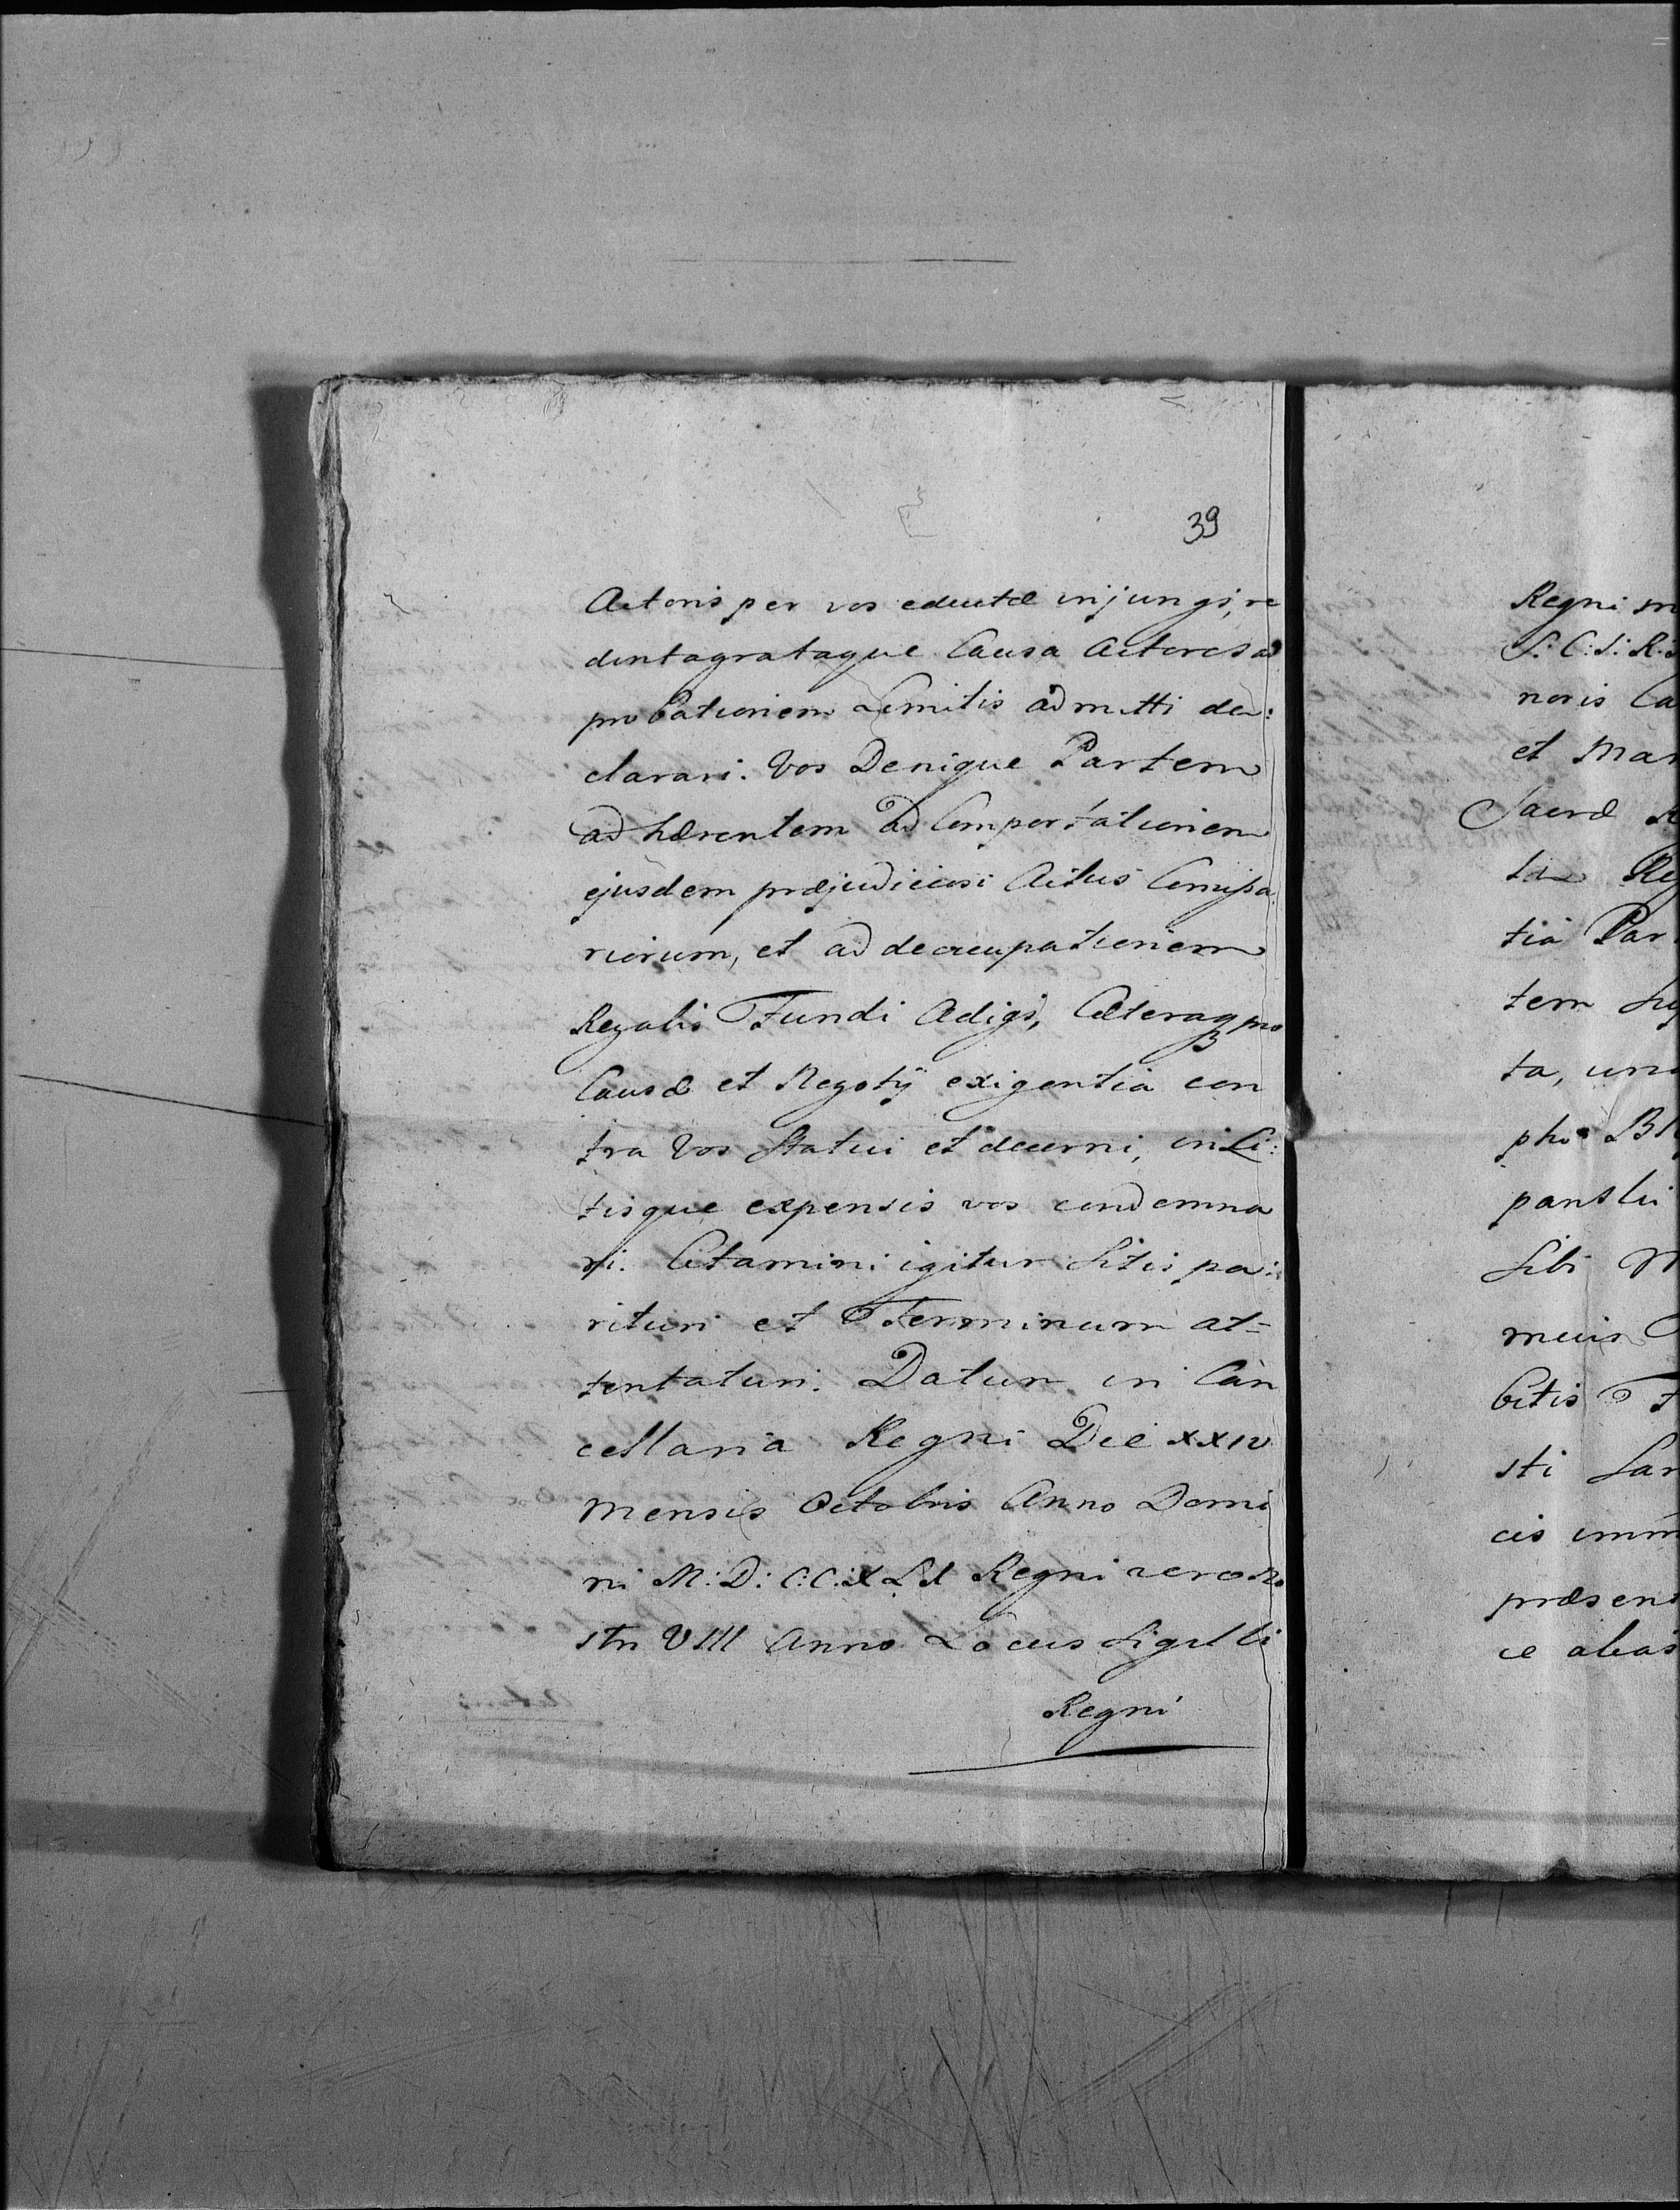 39
Actoris per vos eductæ injungi, re
dintagrataque Causa Actores ad
probationem Limitis admitti de:
clarari. Vos Denique Partem
adhærentem ad Comportationem
ejusdem præjudiciosi Actus Comissa
riorum, et ad deoccupationem
Regalis Fundi Adigi, Cæteraq pro
Causæ et Negotij exigentia con
tra Vos Statui et decerni, in Li:
tisque expensis vos condemna
ri. Citamini igitur Sitis pa:
rituri et Terminum at=
tentaturi. Datum in Can
cellaria Regni Die XXIV
Mensis Octobris Anno Domi
ni M:D:C:C:XLI Regni vero No
stri VIII Anno Locus Sigilli
Regni
Regni
S: C: S: R:
noris Ca
et Mar
Sacræ
Reg
tia Par
tem
ta, una
pho
panslii
Sibi
meus
bitis
sti San
cis imm
præsent
ce alias